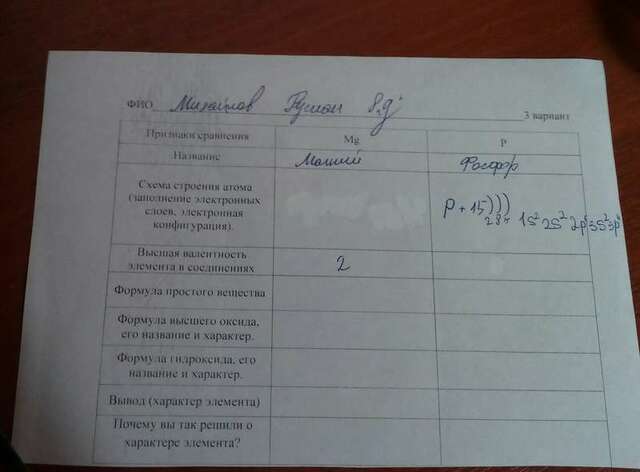 ФИО Михайлов Руслан 8 "Д"
3 вариант
Признаки сравнения Mg P
Название Магний Фосфор
Схема строения атома
(заполнение электронных
слоев, электронная
конфигурация).
P +15)))
2 8 5 1S² 2S² 2p⁶ 3S² 3p³
Высшая валентность
элемента в соединениях 2
Формула простого вещества
Формула высшего оксида,
его название и характер.
Формула гидроксида, его
название и характер.
Вывод (характер элемента)
Почему вы так решили о
характере элемента?